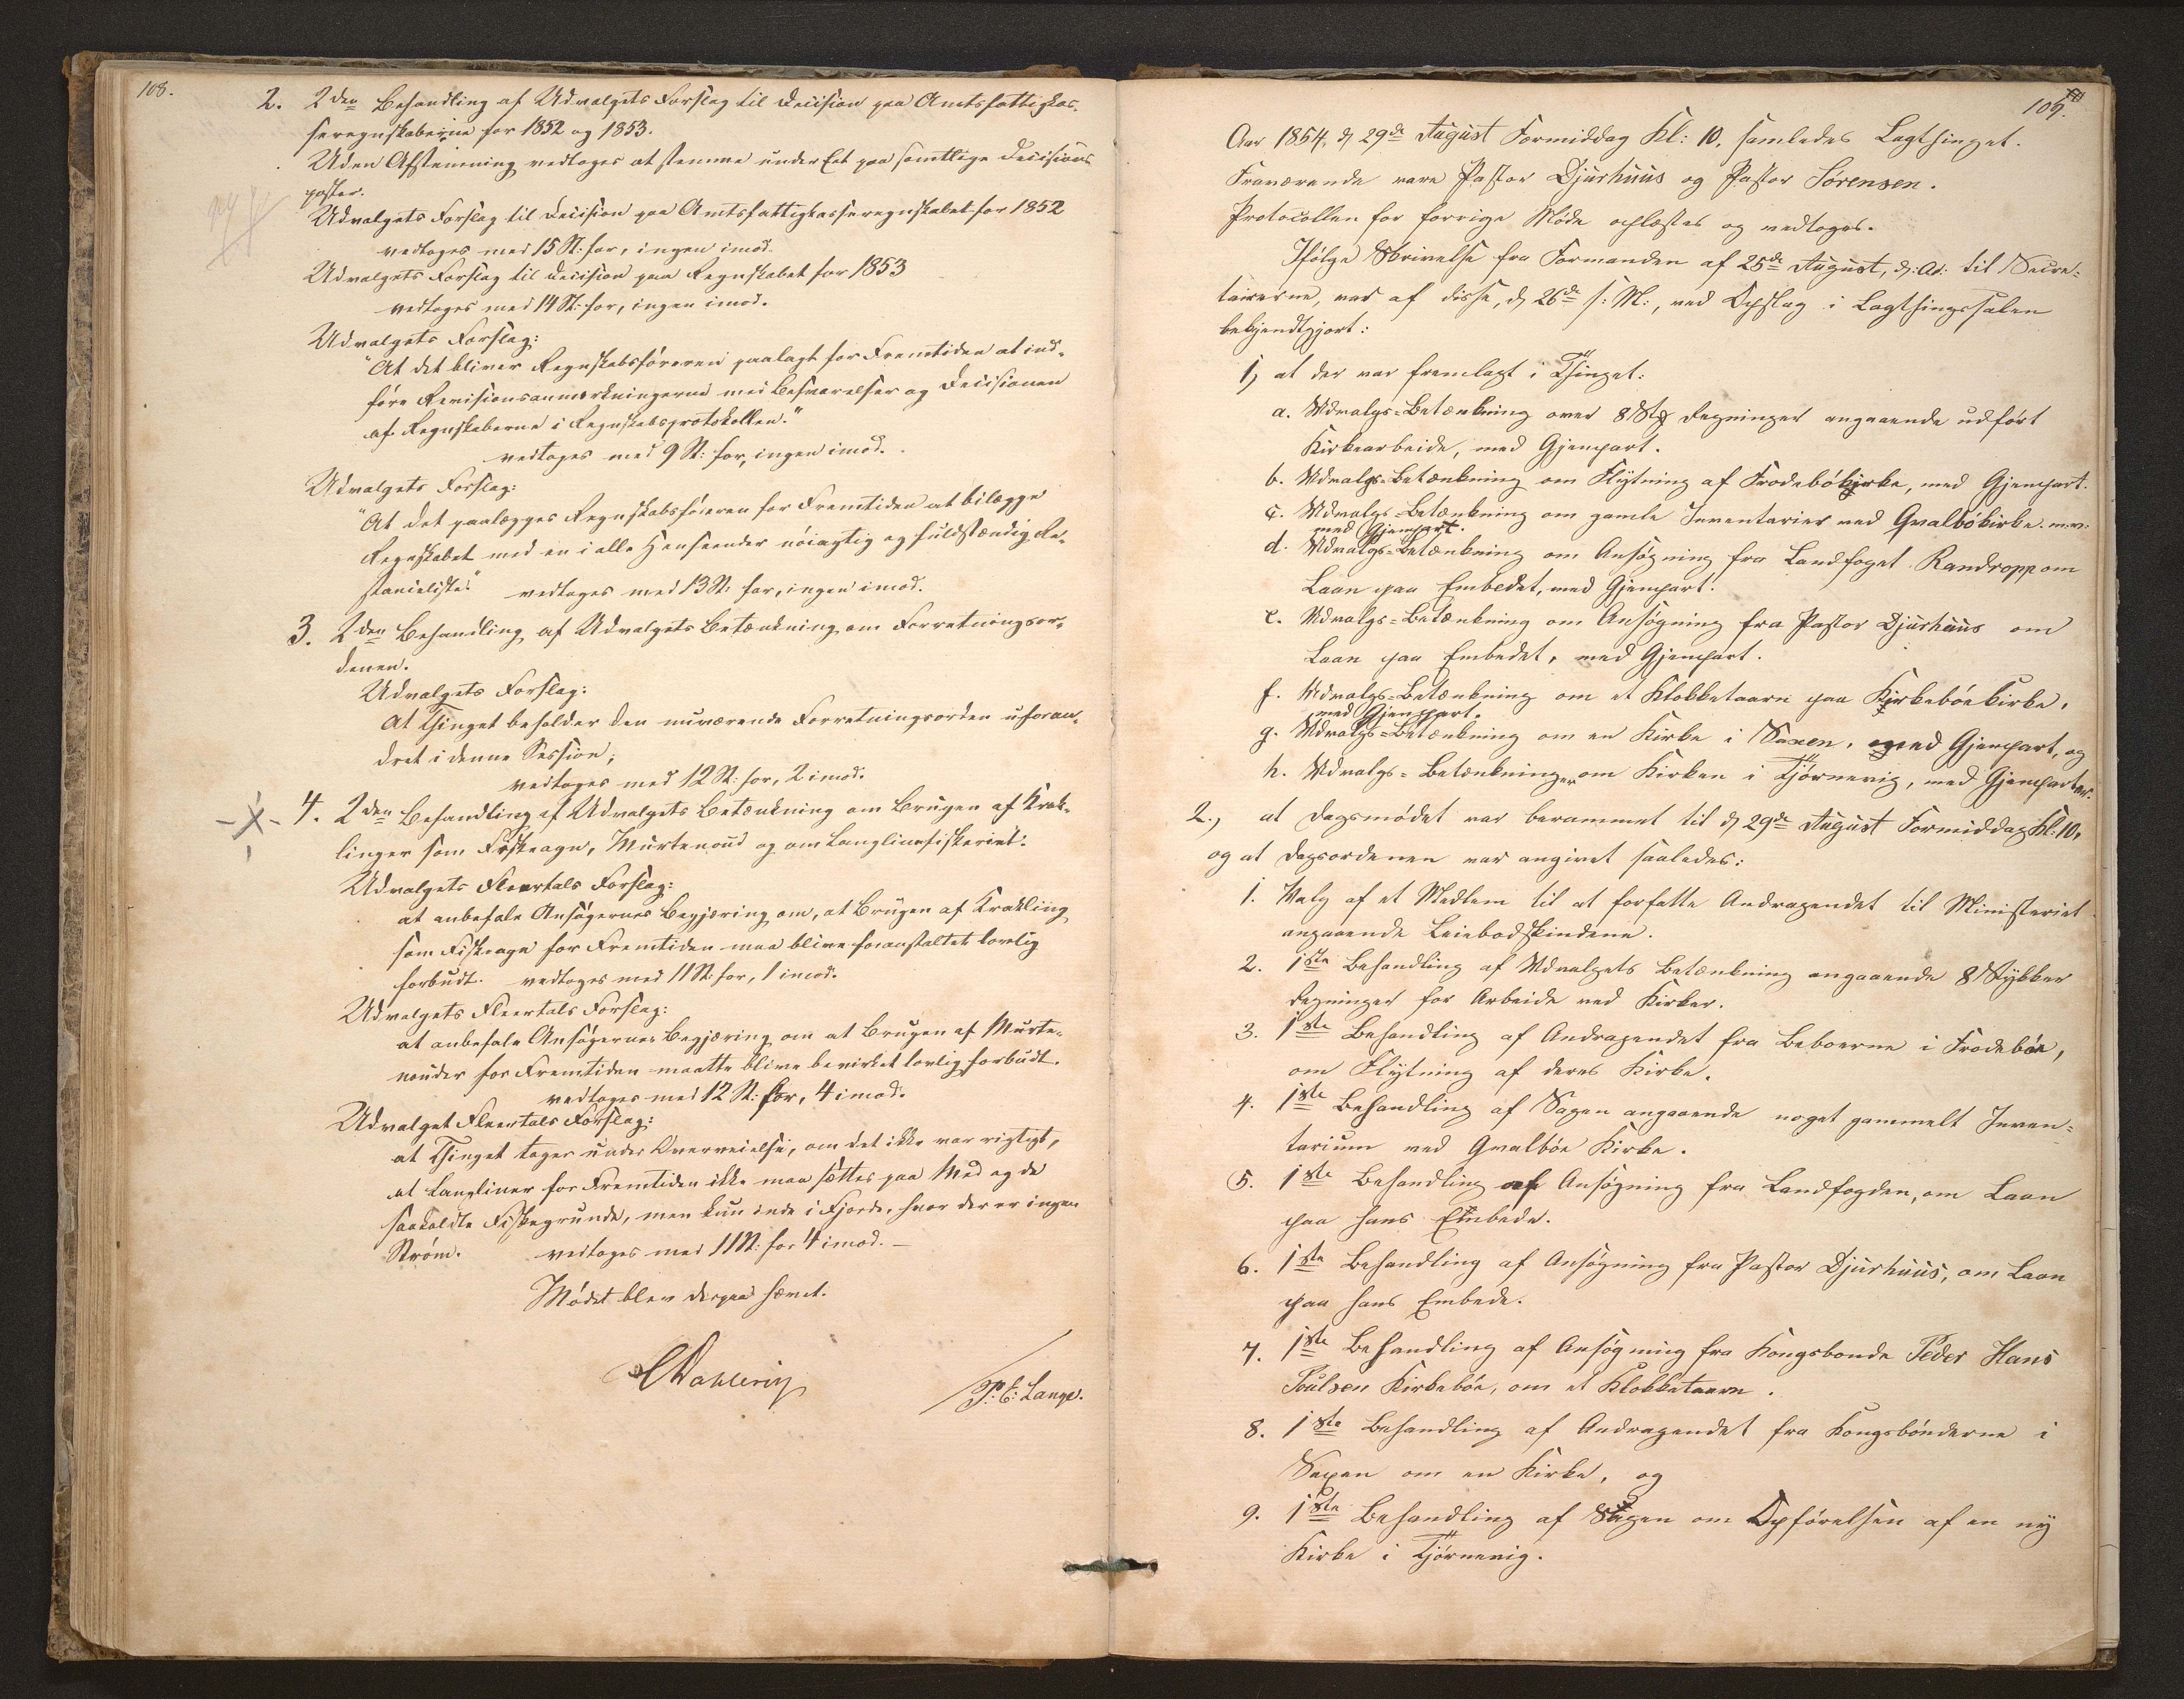 108.
2. 2den Behandling af Udvalgets Forslag til Decision paa Amtsfattigkas-
seregnskaberne for 1852 og 1853.
Uden Afstemning vedtoges at stemme under Eet paa samtlige Decisions
poster.
Udvalgets Forslag til Decision paa Amtsfattigkasseregnskabet for 1852
vedtoges med 15 St: for, ingen imod.
Udvalgets Forslag til Decision paa Regnskabet for 1853
vedtoges med 14 St: for, ingen imod.
Udvalgets Forslag:
"At det bliver Regnskabsføreren paalagt for Fremtiden at ind-
føre Revisionsanmærkningerne med Besvarelser og Decisionen
af Regnskaberne i Regnskabsprotokollen."
vedtoges med 9 St: for, ingen imod.
Udvalgets Forslag:
"At det paalægges Regnskabsføreren for Fremtiden at bilægge
Regnskabet med en i alle Henseender nøiagtig og fuldstændig Re-
stanceliste." vedtoges med 13 St: for, ingen imod.
3. 2den Behandling af Udvalgets Betænkning om Forretningsor-
denen.
Udvalgets Forslag:
At Thinget beholder den nuværende Forretningsorden uforan-
dret i denne Session;
vedtoges med 12 St: for, 2 imod.
4. 2den Behandling af Udvalgets Betænkning om Brugen af Krak-
linger som Fiskeagn, Murtenoud og om Langlinefiskeriet:
Udvalgets Fleertals Forslag:
at anbefale Ansøgernes Begjæring om, at Brugen af Krakling
som Fiskeagn for Fremtiden maa blive foranstaltet lovlig
forbudt. vedtoges med 11 St: for, 1 imod.
Udvalgets Fleertals Forslag:
at anbefale Ansøgernes Begjæring om at Brugen af Murte-
nouder for Fremtiden maatte blive bevirket lovlig forbudt.
vedtoges med 12 St: for, 4 imod.
Udvalget Fleertals Forslag:
at Thinget tager under Overveielse, om det ikke var rigtigt,
at Langliner for Fremtiden ikke maa sættes paa Med og de
saakaldte Fiskegrunde, men kun inde i Fjorde, hvor der er ingen
Strøm. vedtoges med 11 St: for 4 imod. –
Mødet blev derpaa hævet.
CDahlerup
P: E: Lange.
109.
Aar 1854, d. 29de August Formiddag Kl: 10, samledes Lagthinget.
Fraværende vare Pastor Djurhuus og Pastor Sørensen.
Protocollen for forrige Møde oplæstes og vedtoges.
Ifølge Skrivelse fra Formanden af 25de August, d: A: til Secre-
tairerne, var af disse, d. 26de s: M:, ved Opslag i Lagthingssalen
bekjendtgjort:
1, at der var fremlagt i Thinget:
a. Udvalgs-Betænkning over 8 Stk Regninger angaaende udført
Kirkearbeide, med Gjenpart.
b. Udvalgs-Betænkning om Flytning af Frodebøkirke, med Gjenpart.
c. Udvalgs-Betænkning om gamle Inventarier ved Qvalbøkirke. m.v.
med Gjenpart.
d. Udvalgs-Betænkning om Ansøgning fra Landfoget Randropp om
Laan paa Embedet, med Gjenpart.
e. Udvalgs-Betænkning om Ansøgning fra Pastor Djurhuus om
Laan paa Embedet, med Gjenpart.
f. Udvalgs-Betænkning om et Klokketaarn paa Kirkebøekirke,
med Gjenpart.
g. Udvalgs-Betænkning om en Kirke i Saxen, med Gjenpart, og
h. Udvalgs-Betænkninger om Kirken i Tjørnevig, med Gjenparter.
2., at Dagsmødet var berammet til d. 29de August Formiddag Kl. 10,
og at Dagsordenen var angivet saaledes:
1. Valg af et Medlem til at forfatte Andragendet til Ministeriet
angaaende Leiebodskindene.
2. 1ste Behandling af Udvalgets Betænkning angaaende 8 Stykker
Regninger for Arbeide ved Kirker.
3. 1ste Behandling af Andragendet fra Beboerne i Frodebøe,
om Flytning af deres Kirke.
4. 1ste Behandling af Sagen angaaende noget gammelt Inven-
tarium ved Qvalbøe Kirke.
5. 1ste Behandling af Ansøgning fra Landfogden, om Laan
paa hans Embede.
6. 1ste Behandling af Ansøgning fra Pastor Djurhuus, om Laan
paa hans Embede.
7. 1ste Behandling af Ansøgning fra Kongsbonde Peder Hans
Poulsen Kirkebøe, om et Klokketaarn.
8. 1ste Behandling af Andragendet fra Kongsbønderne i
Saxen om en Kirke, og
9. 1ste Behandling af Sagen om Opførelsen af en ny
Kirke i Tjørnevig.